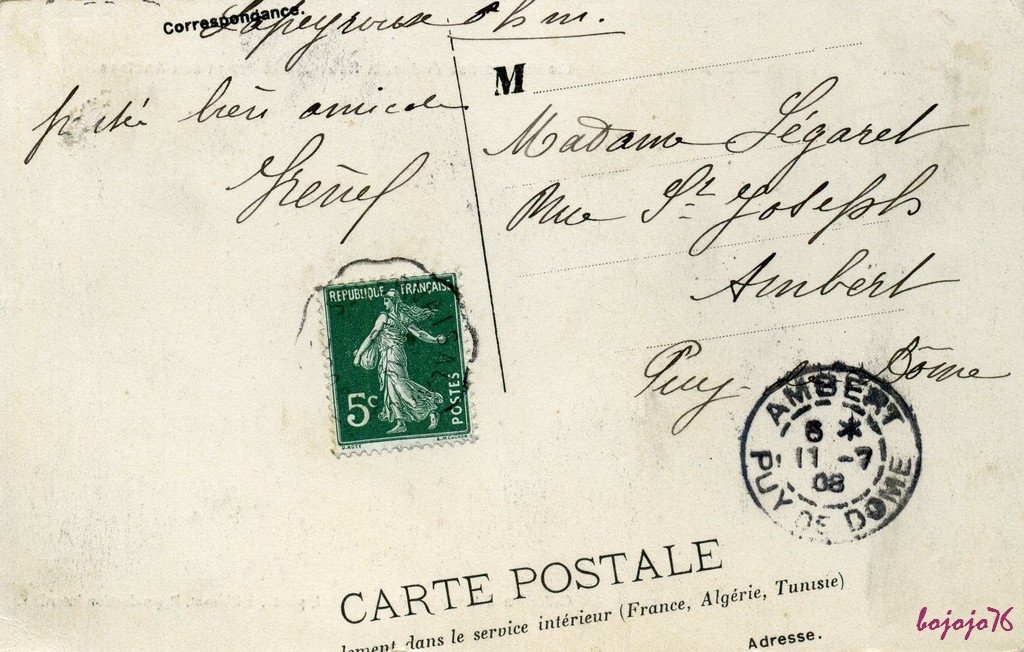 Correspondance.
Lapeyrouse
bien amicale
M
Madame Ségaret
Rue St Joseph
Ambert
Puy-de Dôme
REPUBLIQUE FRANÇAISE
5c
POSTES
AMBERT
6 *
11 -7
08
PUY DE DOME
CARTE POSTALE
lement dans le service intérieur (France, Algérie, Tunisie)
Adresse.
bojojo76